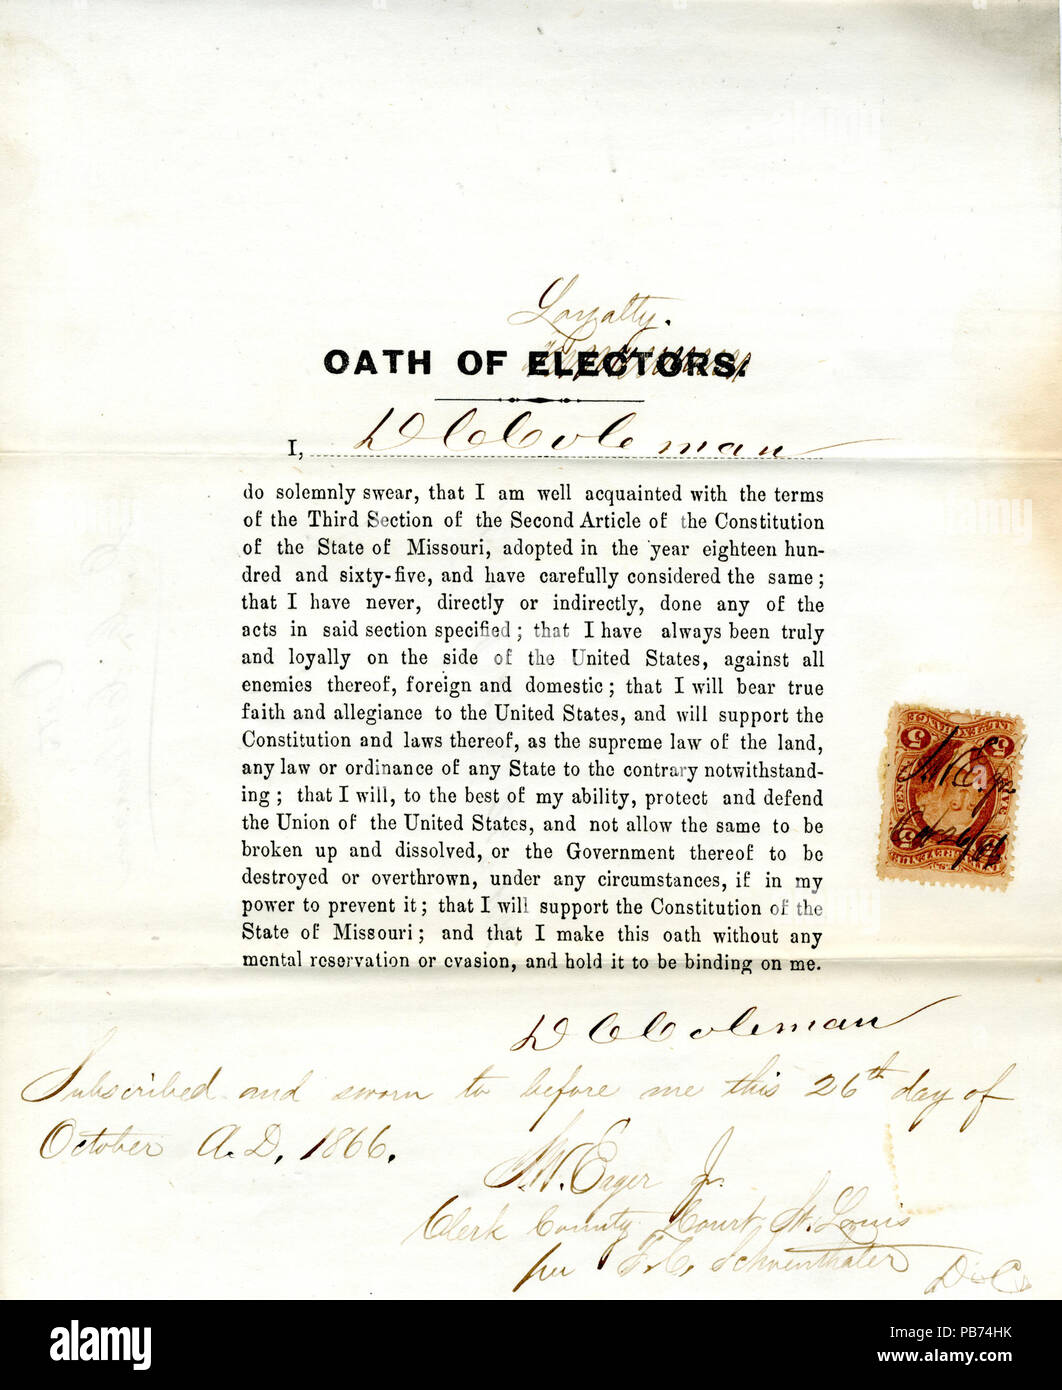 Loyalty.
OATH OF ELECTORS.
I, D C Coleman
do solemnly swear, that I am well acquainted with the terms
of the Third Section of the Second Article of the Constitution
of the State of Missouri, adopted in the year eighteen hun-
dred and sixty-five, and have carefully considered the same;
that I have never, directly or indirectly, done any of the
acts in said section specified; that I have always been truly
and loyally on the side of the United States, against all
enemies thereof, foreign and domestic; that I will bear true
faith and allegiance to the United States, and will support the
Constitution and laws thereof, as the supreme law of the land,
any law or ordinance of any State to the contrary notwithstand-
ing; that I will, to the best of my ability, protect and defend
the Union of the United States, and not allow the same to be
broken up and dissolved, or the Government thereof to be
destroyed or overthrown, under any circumstances, if in my
power to prevent it; that I will support the Constitution of the
State of Missouri; and that I make this oath without any
mental reservation or evasion, and hold it to be binding on me.
D C Coleman
Subscribed and sworn to before me this 26th day of
October A.D. 1866.
S.W. Eager Jr.
Clerk County Court St. Louis
per F.C. Schoenthaler D.C.
5 5
CENTS FIVE
5 5
alamy
Image ID: PB74HK
www.alamy.com